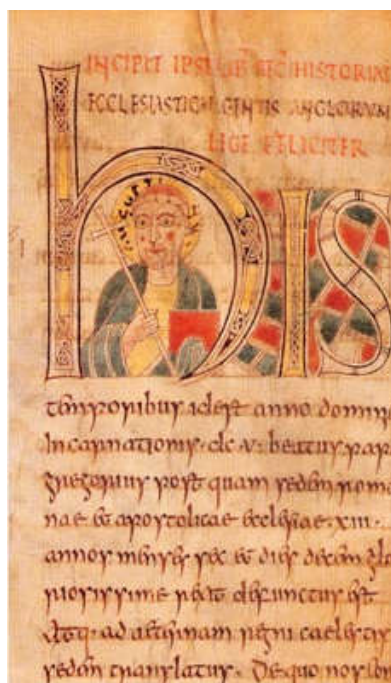 INCIPIT HISTORIA
ECCLESIASTICAE GENTIS ANGLORUM
FELICITER
AUGUSTI
hIS
temporibus id est anno domini
Incarnationis · dc v · beatus pap
gregorius post quam sedem roma
nae et apostolicae ecclesiae · xiii ·
annos menses sex et dies decem glo
riosissime rexit defunctus est
Atq: ad aeternam regni caelestis
sedem translatus · De quo nos